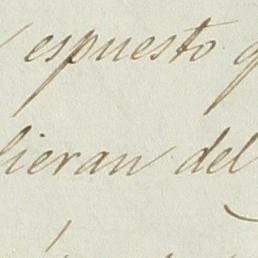 espuesto q
lieran del